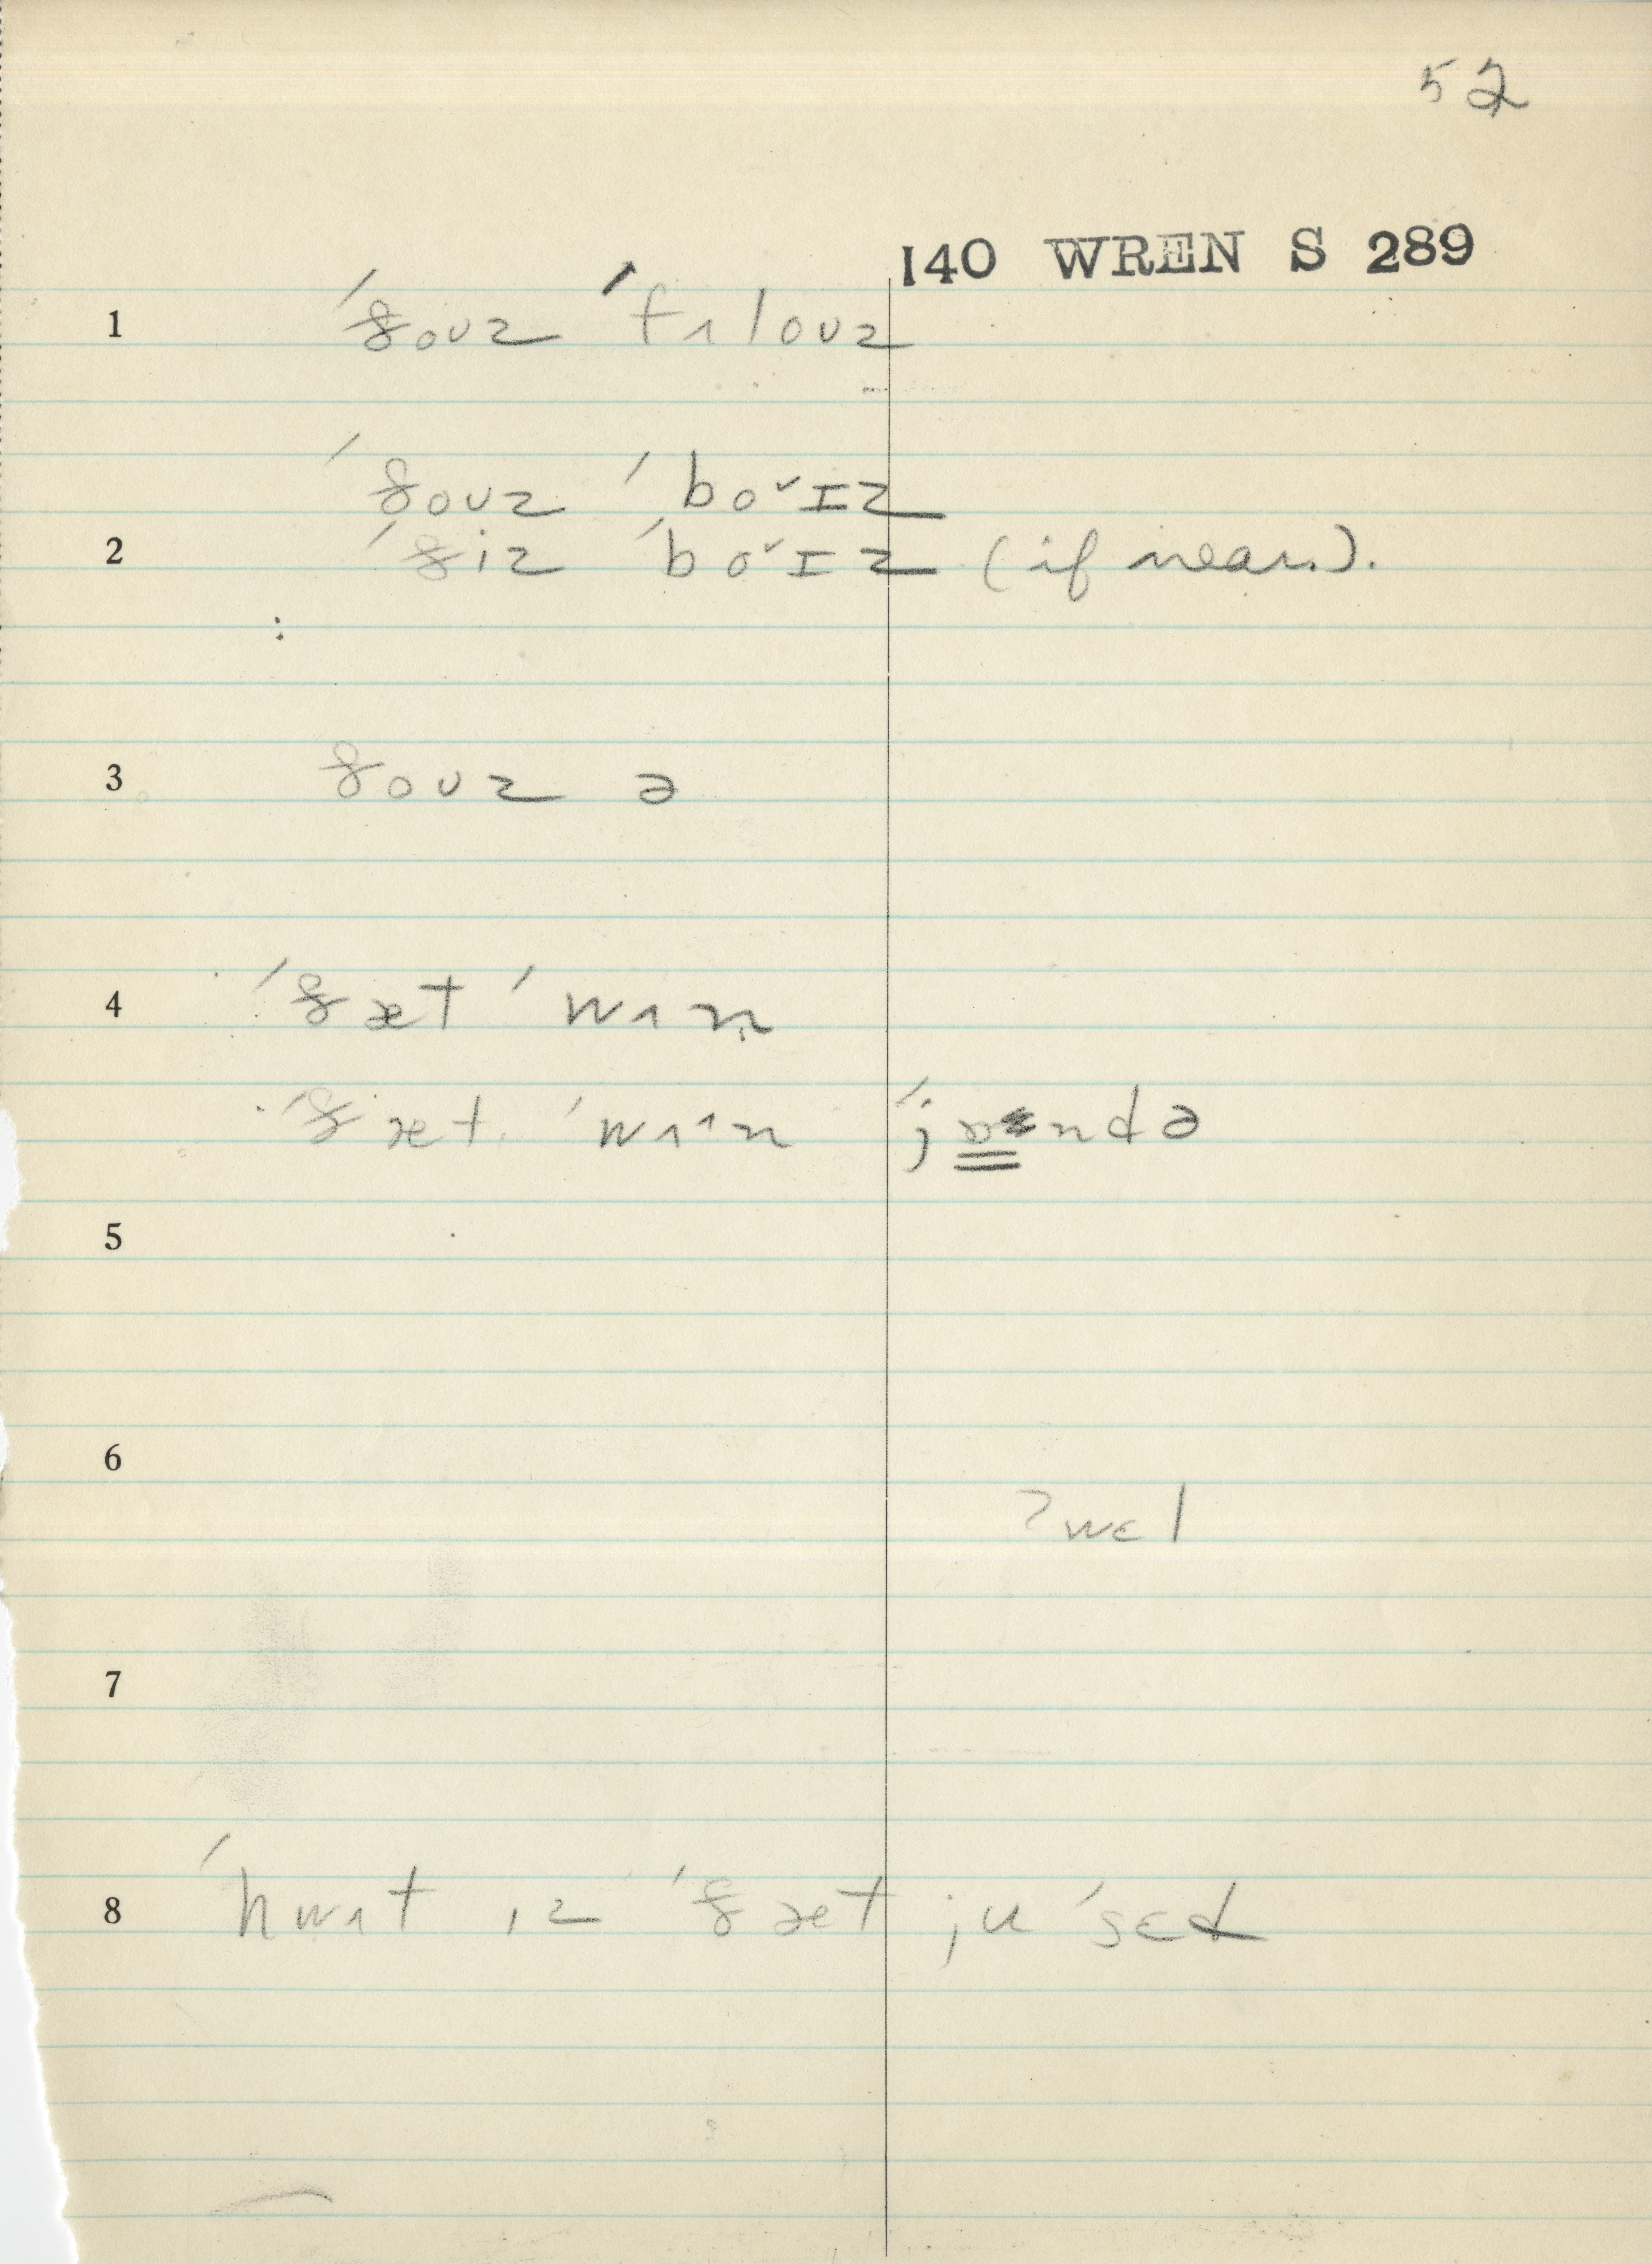 52
140 WREN S 289
1 ˈðoʊz ˈfɪloʊz
ˈðoʊz ˈboˇɪz
2 ˈðiz ˈboˇɪz (if near.).
3 ðoʊz ə
4 ˈðæt ˈwʌn
ˈðæt ˈwʌˆn ˈjɒndə
5
6
?wɛl
7
8 ˈhwʌt ɪz ˈðæt ju ˈsɛd